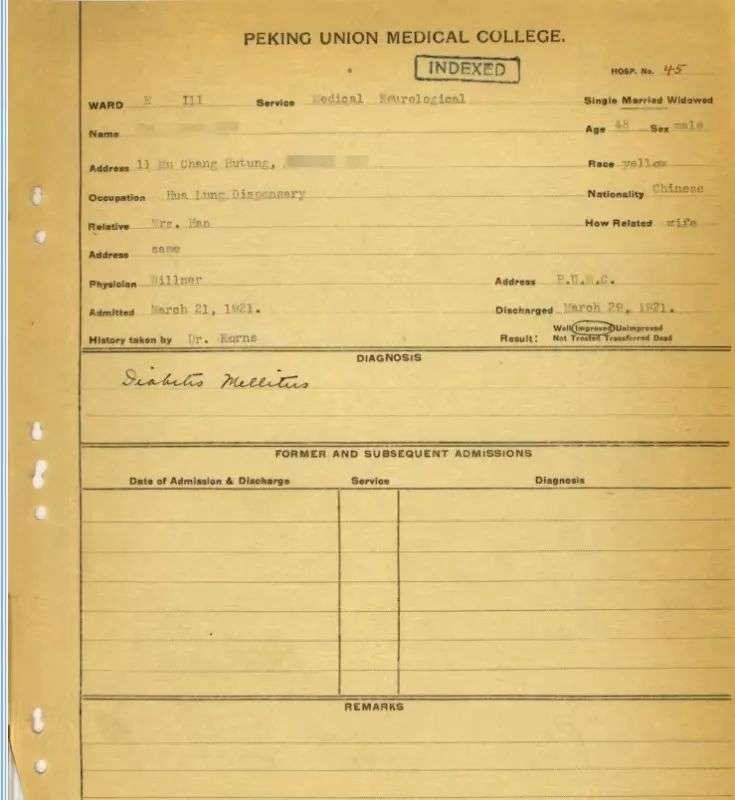 PEKING UNION MEDICAL COLLEGE.
INDEXED
HOSP. No. 45
WARD E III Service Medical Neurological Single Married Widowed
Name
Age 48 Sex male
Address 11 Hu Chang Hutung,
Race yellow
Occupation Hua Lung Dispensary
Nationality Chinese
Relative Mrs. Han
How Related wife
Address same
Physician Willner Address P.U.M.C.
Admitted March 21, 1921. Discharged March 29, 1921.
History taken by Dr. Korns Result: Well Improved Unimproved
Not Treated Transferred Dead
DIAGNOSIS
Diabetis Mellitus
FORMER AND SUBSEQUENT ADMISSIONS
Date of Admission & Discharge Service Diagnosis
REMARKS